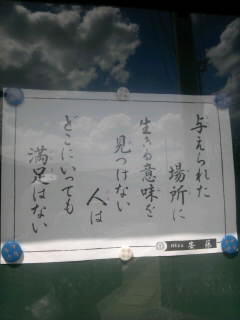 与えられた
場所に
生きる意味を
見つけない
人は
どこにいっても
満足はない
安藤